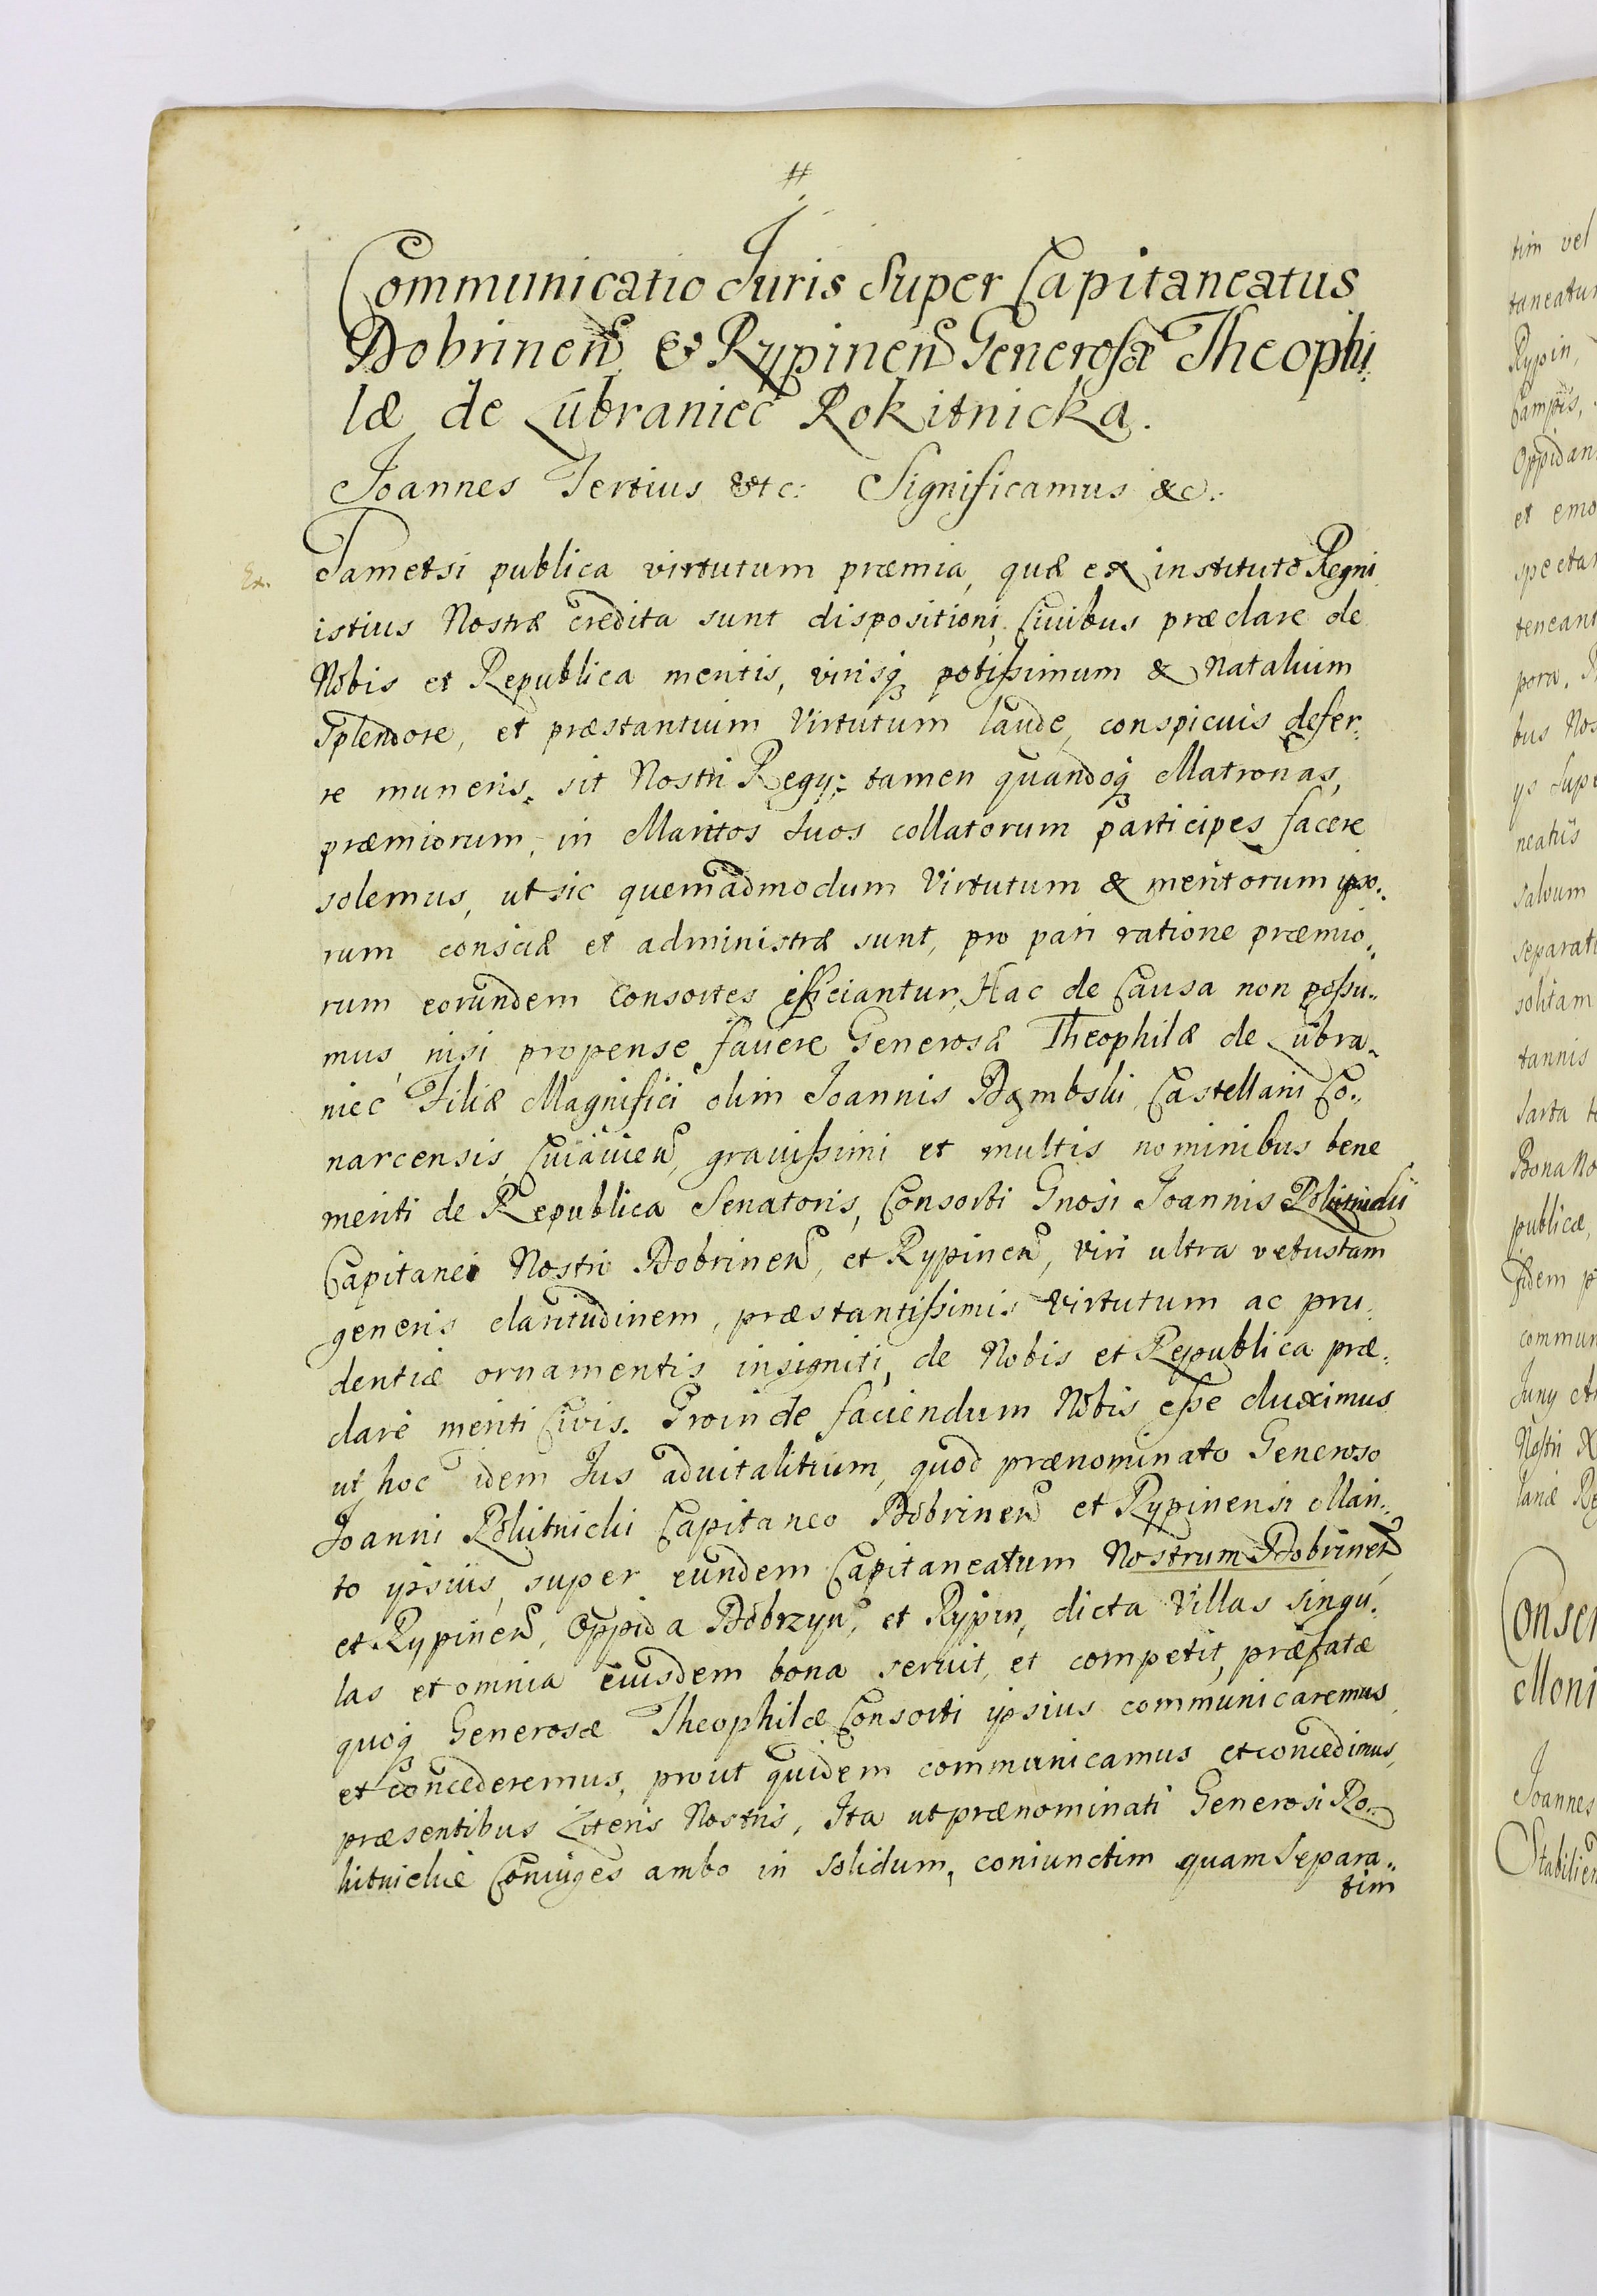 #
Communicatio Juris Super Capitaneatus
Dobrinen. & Rypinen Generosæ Theophi.
læ de Lubraniec Rokitnicka.
Joannes Tertius etc: Significamus &c:
Ex.
Tametsi publica virtutum præmia, quæ ex instituto Regni
istius Nostræ credita sunt dispositioni, Civibus præclare de
Nobis et Republica meritis, virisq potissimum & Natalium
Splendore, et præstantium Virtutum laude, conspicuis defer.
re muneris, sit Nostri Regy; tamen quandoq Matronas,
præmiorum, in Maritos suos collatorum participes facere
solemus, ut sic quemadmodum Virtutum & meritorum ipso.
rum consciæ et administræ sunt, pro pari ratione præmio.
rum eorundem Consortes efficiantur, Hac de Causa non possu..
mus, nisi propense favere Generosæ Theophilæ de Lubra.
niec Filiæ Magnifici olim Joannis Dąmbski, Castellani Co..
narcensis, Cuiavien, gravissimi et multis nominibus bene
meriti de Republica Senatoris, Consorti Gnosi Joannis Rokitnicki
Capitanei Nostri Dobrinen, et Rypinen, viri ultra vetustam
generis claritudinem, præstantissimis Virtutum ac pru.
dentiæ ornamentis insigniti, de Nobis et Republica præ.
clare meriti Civis. Proinde faciendum Nobis esse duximus
ut hoc idem Jus advitalitium, quod prænominato Generoso
Joanni Rokitnicki Capitaneo Dobrinen et Rypinensi Mari..
to ipsius, super eundem Capitaneatum Nostrum Dobrinen
et Rypinen, Oppida Dobrzyn, et Rypin, dicta Villas singu.
las et omnia eiusdem bona servit, et competit, præfatæ
quoq Generosæ Theophilæ Consorti ipsius communicaremus
et concederemus, prout quidem communicamus et concedimus,
præsentibus Literis Nostris, Ita ut prænominati Generosi Ro..
kitnickie Coniuges ambo in Solidum, coniunctim quam Separa..
tim
tim vel
Rypin,
Campis,
et emo
teneant
pora.
bus Nos
neatus
salvum
separati
solitam
tannis
Sarta
Bona No
publicæ,
commun
Nostri
Conser
Moni
Joannes